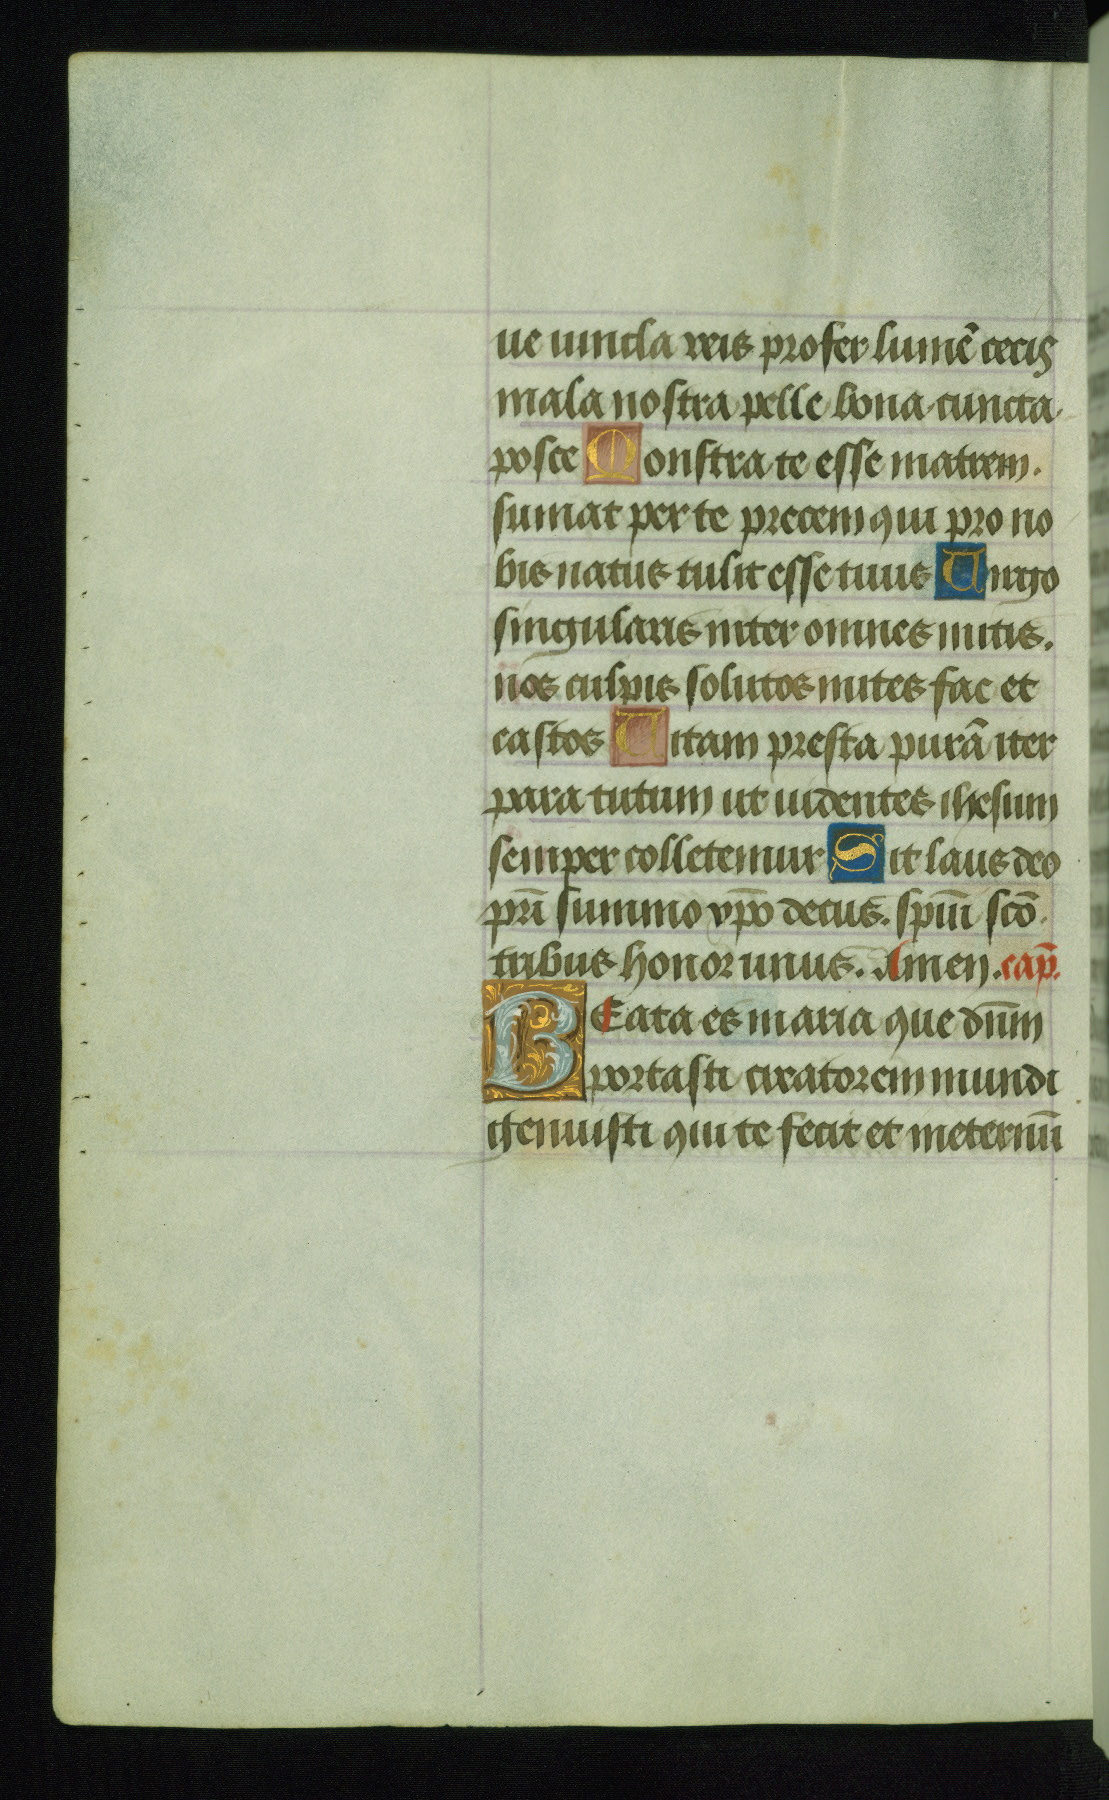 ue uincla reis profer lumē cecis
mala nostra pelle bona cuncta
posce Monstra te esse matrem.
sumat per te precem qui pro no
bis natus tulit esse tuus Uirgo
singularis inter omnes mitis.
nos culpis solutos mites fac et
castos Uitam presta purā iter
para tutum ut uidentes ihesum
semper colletemur Sit laus deo
pr̄i summo xp̄o decus. sp̄iu̅i sc̄o.
tribus honor unus. Amen. cap̄.
BEata es maria que dn̄m
portasti creatorem mundi
genuisti qui te fecit et ineternū